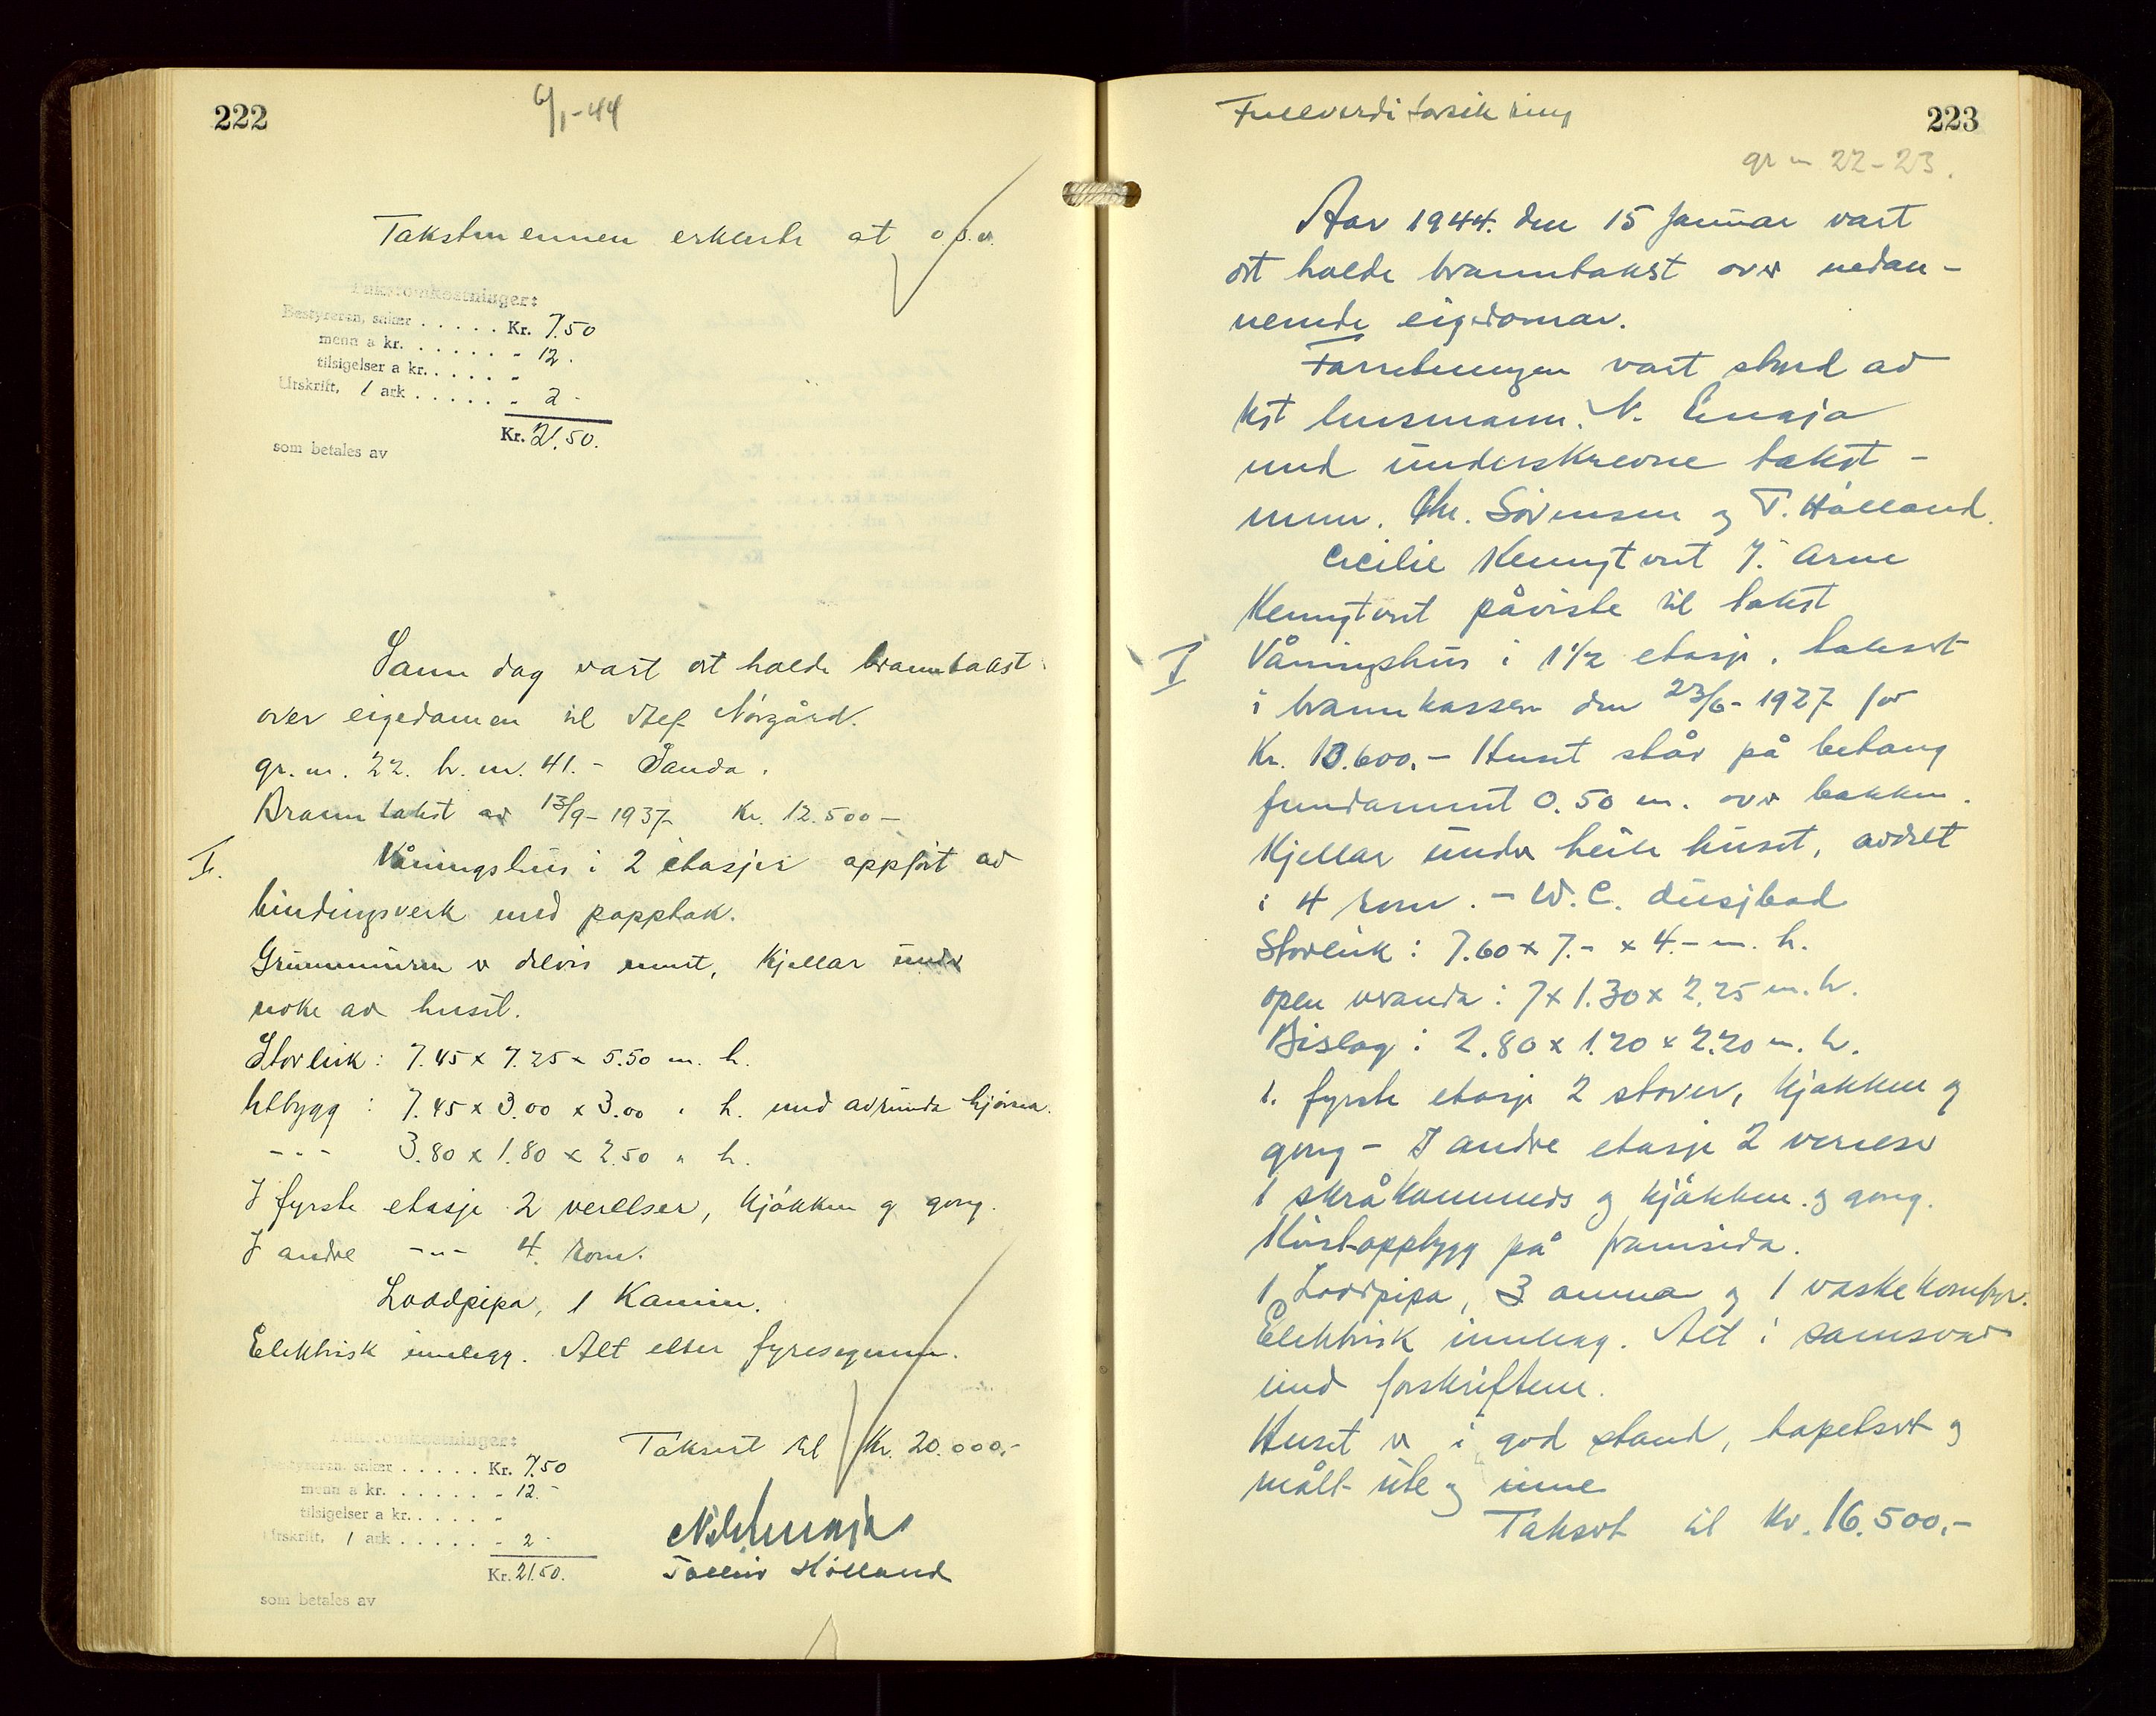 222
6/1-44
Takstmennen erklerte at o.s.v.
Takstomkostninger:
Bestyreren, salær . . . . . Kr. 7.50
menn a kr. . . . . . . " 12.
tilsigelser a kr. . . . . . "
Utskrift, 1 ark . . . . . . " 2 -
Kr. 21.50.
som betales av
Same dag vart det halde branntakst
over eigedomen til Alf Norgård.
gr. nr. 22. br. nr. 41. - Sanda.
Branntakst av 13/9-1937 Kr. 12.500 -
I. Våningshus i 2 etasjer oppført av
bindingsverk med papptak.
Grunnmuren er delvis murt, Kjellar under
noke av huset.
Storleik: 7.45 x 7.25 x 5.50 m. h.
Utbygg : 7.45 x 3.00 x 3.00 " h. med avrunda hjørner.
- " - 3.80 x 1.80 x 2.50 " h.
I fyrste etasje 2 verelser, kjøkken og gong.
I andre - " - 4 rom.
Loddpipa, 1 Kamin.
Elektrisk innlegg. Alt etter fyresegnene.
Taksert til Kr. 20.000,-
Takstomkostninger:
Bestyreren, salær . . . . . Kr. 7.50
menn a kr. . . . . . . " 12. -
tilsigelser a kr. . . . . . "
Utskrift, 1 ark . . . . . . " 2 -
Kr. 21.50.
som betales av
Tølleiv Hølland
223
Fullverdi forsikring
gr nr 22-23.
Aar 1944. den 15 Januar vart
det halde branntakst over nedan-
nemde eigedomar.
Forretningen vart styrd av
lensmann. N.
med underskrevne takst-
menn. Chr. Sörensen og T. Hølland.
Cecilie f. Arne
påviste til takst
I Våningshus i 1 1/2 etasje, taksert
i brannkassen den 23/6-1927 for
Kr. 13.600.- Huset står på betong
fundament 0.50 m. over bakken.
Kjellar under heile huset, avdelt
i 4 rom. - W.C. dusjbad
Storleik : 7.60 x 7.- x 4.- m. h.
open veranda : 7 x 1.30 x 2.25 m. h.
Bislag : 2.80 x 1.20 x 2.20 m. h.
I. fyrste etasje 2 stover, kjøkken og
gong - I andre etasje 2 verelser
1 skråkammers og kjøkken og gong.
Kvistoppbygg på framsida.
1 Loddpipa, 3 omna og 1 vaskekomfyr.
Elektrisk innlegg. Alt i samsvar
med forskriftene.
Huset er i god stand, tapetsert og
målt ute og inne
Taksert til Kr. 16.500,-